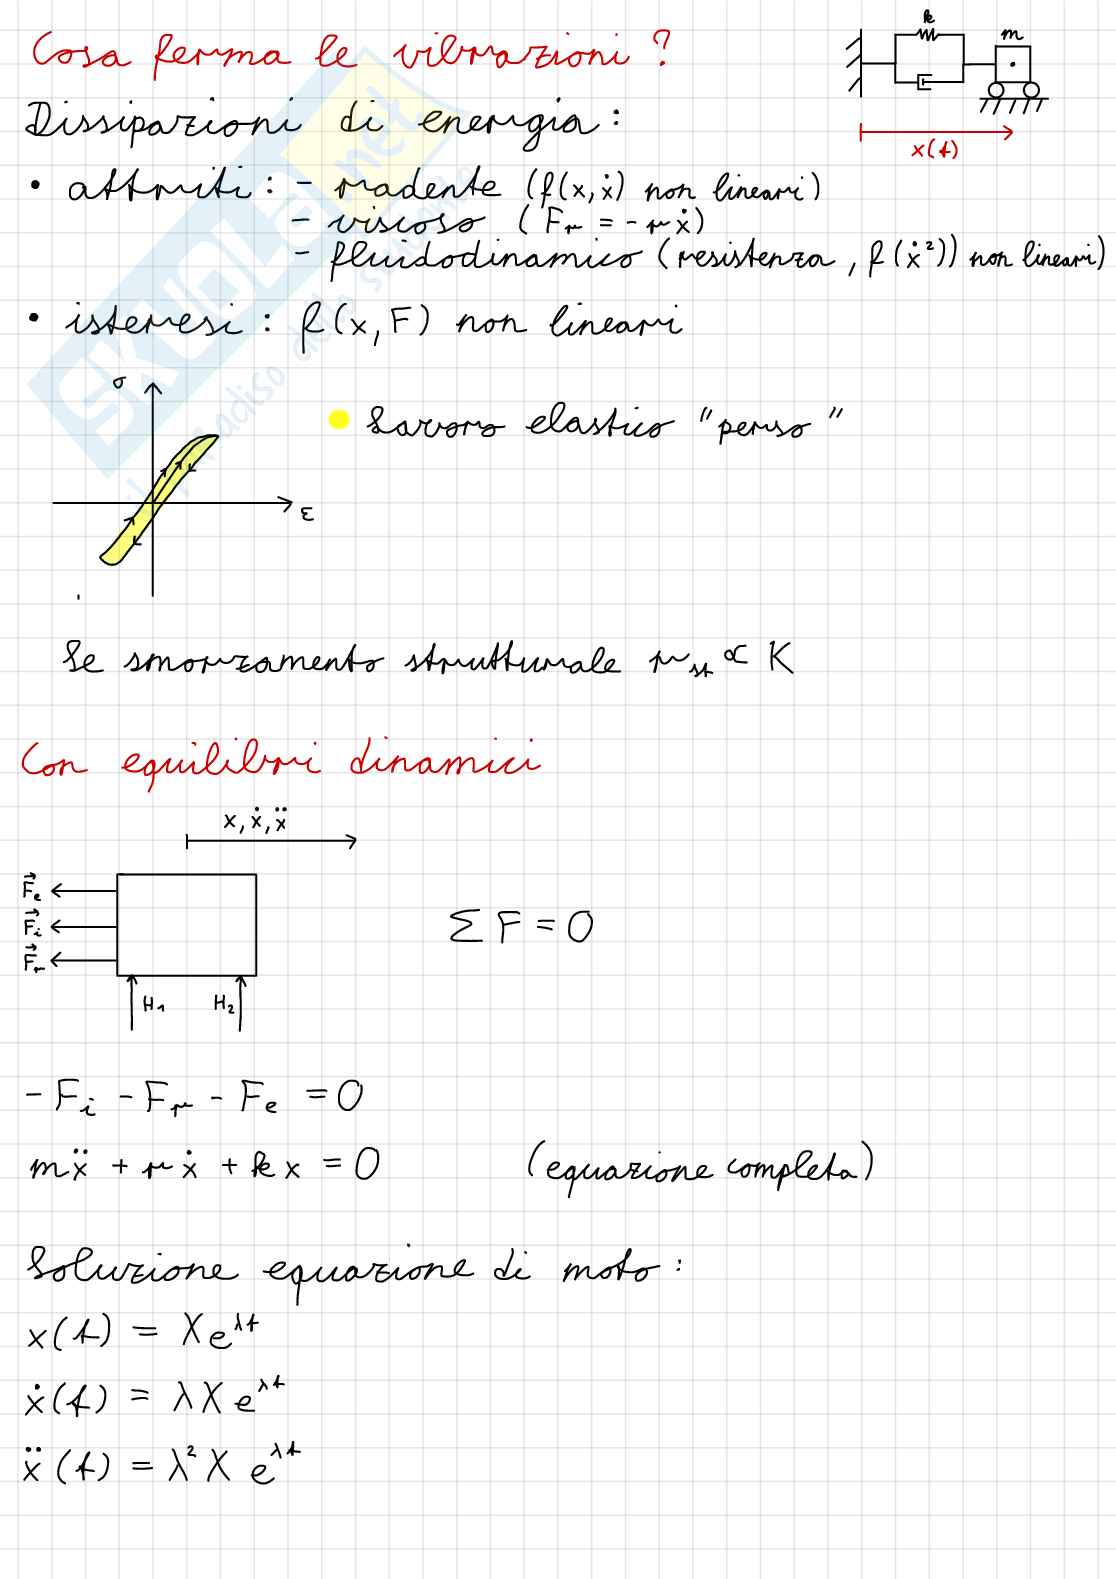 Cosa ferma le vibrazioni ?
k
m
x(t)
Dissipazioni di energia :
• attriti : - radente (f(x, ẋ) non lineari)
- viscoso ( Fr = - r ẋ)
- fluidodinamico (resistenza, f(ẋ²)) non lineari)
• isteresi : f(x, F) non lineari
σ
ε
Lavoro elastico "perso"
Se smorzamento strutturale r_st ∝ K
Con equilibri dinamici
x, ẋ, ẍ
F⃗e
F⃗i
F⃗r
H1 H2
Σ F = 0
- Fi - Fr - Fe = 0
mẍ + rẋ + kx = 0 (equazione completa)
Soluzione equazione di moto :
x(t) = X e^λt
ẋ(t) = λ X e^λt
ẍ(t) = λ² X e^λt
SKUOLA.net
il paradiso dello studente